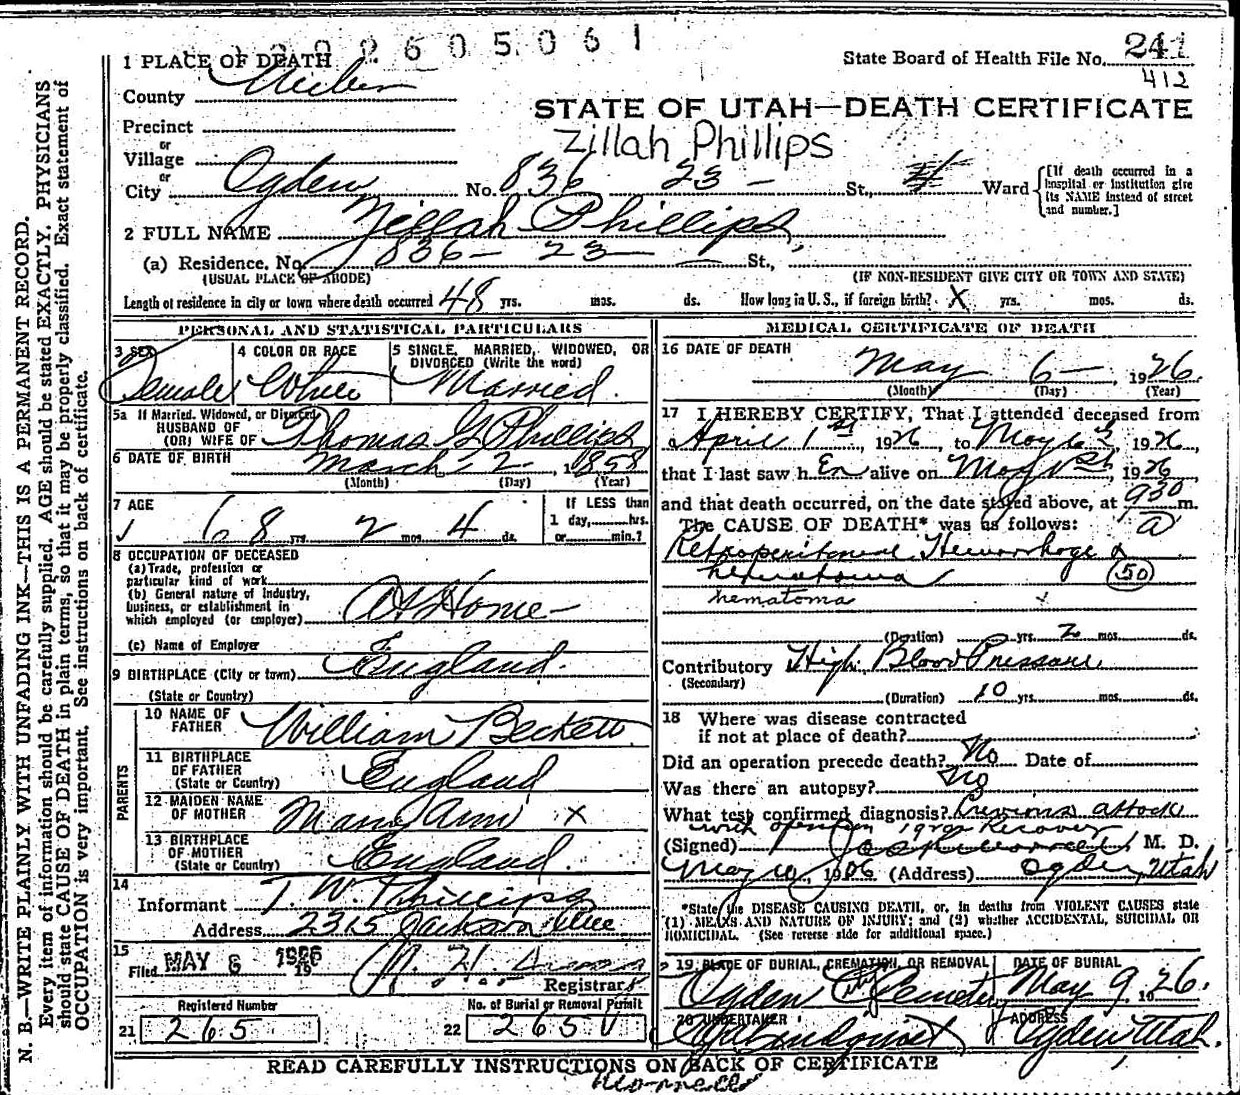 2605061
1 PLACE OF DEATH
State Board of Health File No. 241
412
County Weber
STATE OF UTAH—DEATH CERTIFICATE
Precinct
or
Zillah Phillips
Village
or
City Ogden No. 836 23 — St., Ward
[If death occurred in a hospital or institution give its NAME instead of street and number.]
2 FULL NAME Zillah Phillips
(a) Residence. No. 836 — 23 — St.,
(USUAL PLACE OF ABODE) (IF NON-RESIDENT GIVE CITY OR TOWN AND STATE)
Length of residence in city or town where death occurred 48 yrs. mos. ds. How long in U. S., if foreign birth? X yrs. mos. ds.
PERSONAL AND STATISTICAL PARTICULARS
3 SEX Female
4 COLOR OR RACE White
5 SINGLE, MARRIED, WIDOWED, OR DIVORCED (Write the word) Married
5a If Married, Widowed, or Divorced
HUSBAND OF
(OR) WIFE OF Thomas G Phillips
6 DATE OF BIRTH March 2, 1858
(Month) (Day) (Year)
7 AGE 68 yrs. 2 mos. 4 ds.
If LESS than
1 day, hrs.
or min.?
8 OCCUPATION OF DECEASED
(a) Trade, profession or
particular kind of work
(b) General nature of Industry,
business, or establishment in
which employed (or employer) At Home —
(c) Name of Employer
9 BIRTHPLACE (City or town) England.
(State or Country)
PARENTS
10 NAME OF FATHER William Beckett
11 BIRTHPLACE OF FATHER (State or Country) England
12 MAIDEN NAME OF MOTHER Mary Ann X
13 BIRTHPLACE OF MOTHER (State or Country) England.
14
Informant T. W. Phillips
Address 2315 Jackson Ave
15
Filed MAY 6 1926 19
Registrar
Registered Number
21 265
No. of Burial or Removal Permit
22 265
MEDICAL CERTIFICATE OF DEATH
16 DATE OF DEATH
May 6 — 1926.
(Month) (Day) (Year)
17 I HEREBY CERTIFY, That I attended deceased from
April 1st, 1926 to May 6th 1926
that I last saw h er alive on May 1st, 1926
and that death occurred, on the date stated above, at 930 m.
The CAUSE OF DEATH* was as follows: a
Retroperitoneal Hemorrhage &
hematoma 50
hematoma
(Duration) yrs. 2 mos. ds.
Contributory High Blood Pressure
(Secondary)
(Duration) 10 yrs. mos. ds.
18 Where was disease contracted
if not at place of death?
Did an operation precede death? No Date of
Was there an autopsy? No
What test confirmed diagnosis? Previous attack
with operation Recover
(Signed) M. D.
May 10, 1906 (Address) Ogden, Utah
*State the DISEASE CAUSING DEATH, or, in deaths from VIOLENT CAUSES state
(1) MEANS AND NATURE OF INJURY; and (2) whether ACCIDENTAL, SUICIDAL OR
HOMICIDAL. (See reverse side for additional space.)
19 PLACE OF BURIAL, CREMATION, OR REMOVAL
Ogden City Cemetery
DATE OF BURIAL
May 9, 1926.
20 UNDERTAKER
ADDRESS
Ogden Utah.
READ CAREFULLY INSTRUCTIONS ON BACK OF CERTIFICATE
N. B.—WRITE PLAINLY WITH UNFADING INK—THIS IS A PERMANENT RECORD.
Every item of information should be carefully supplied. AGE should be stated EXACTLY. PHYSICIANS
should state CAUSE OF DEATH in plain terms, so that it may be properly classified. Exact statement of
OCCUPATION is very important. See instructions on back of certificate.